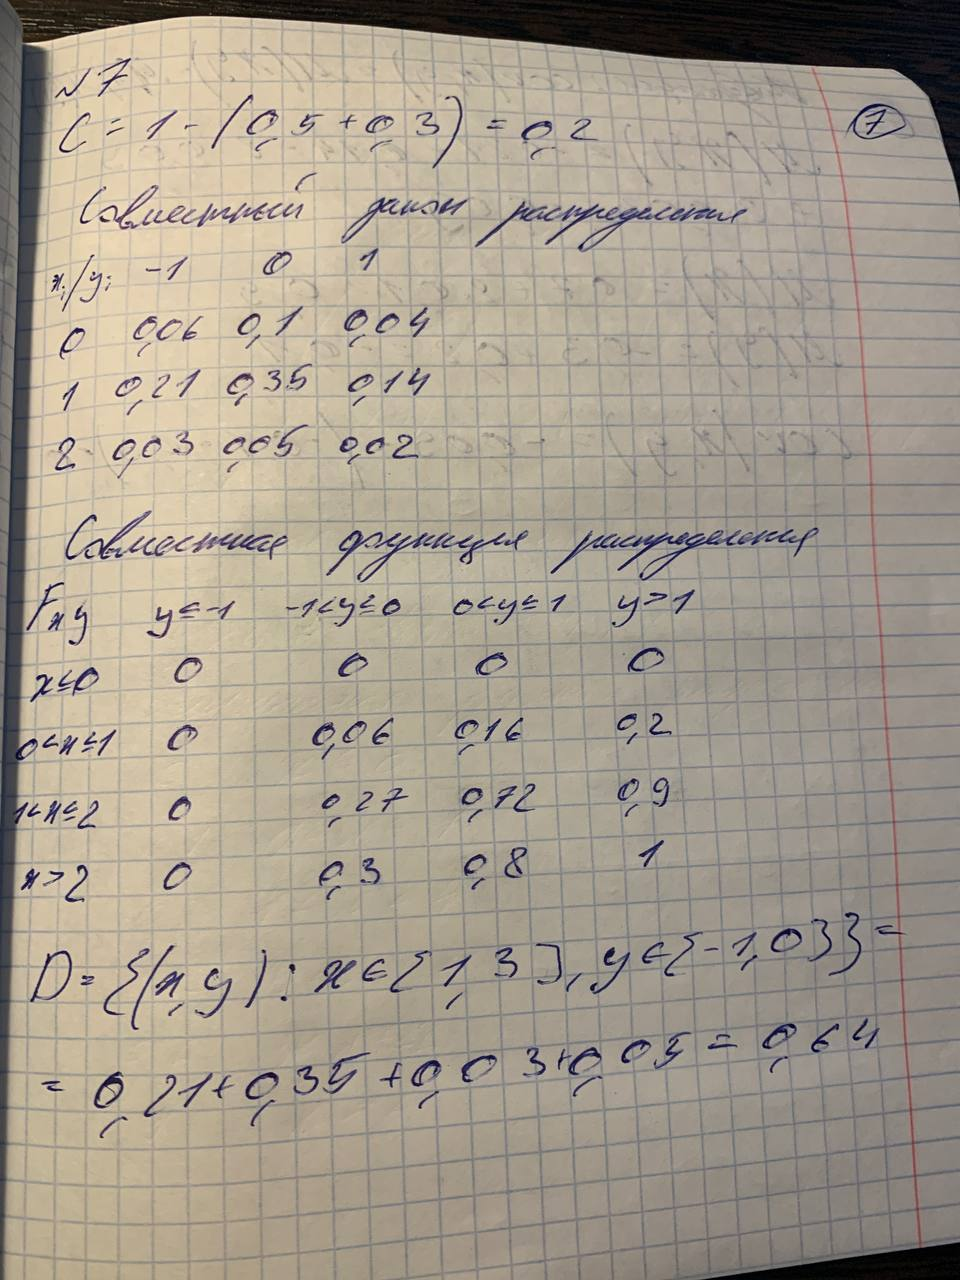 №7
7
C = 1 - (0,5 + 0,3) = 0,2
Совместный закон распределения
xi/yi -1 0 1
0 0,06 0,1 0,04
1 0,21 0,35 0,14
2 0,03 0,05 0,02
Совместная функция распределения
Fxy y≤-1 -1<y≤0 0<y≤1 y>1
x≤0 0 0 0 0
0<x≤1 0 0,06 0,16 0,2
1<x≤2 0 0,27 0,72 0,9
x>2 0 0,3 0,8 1
D = {(x,y) : x∈[1,3], y∈{-1,0}} =
= 0,21+0,35+0,03+0,05 = 0,64